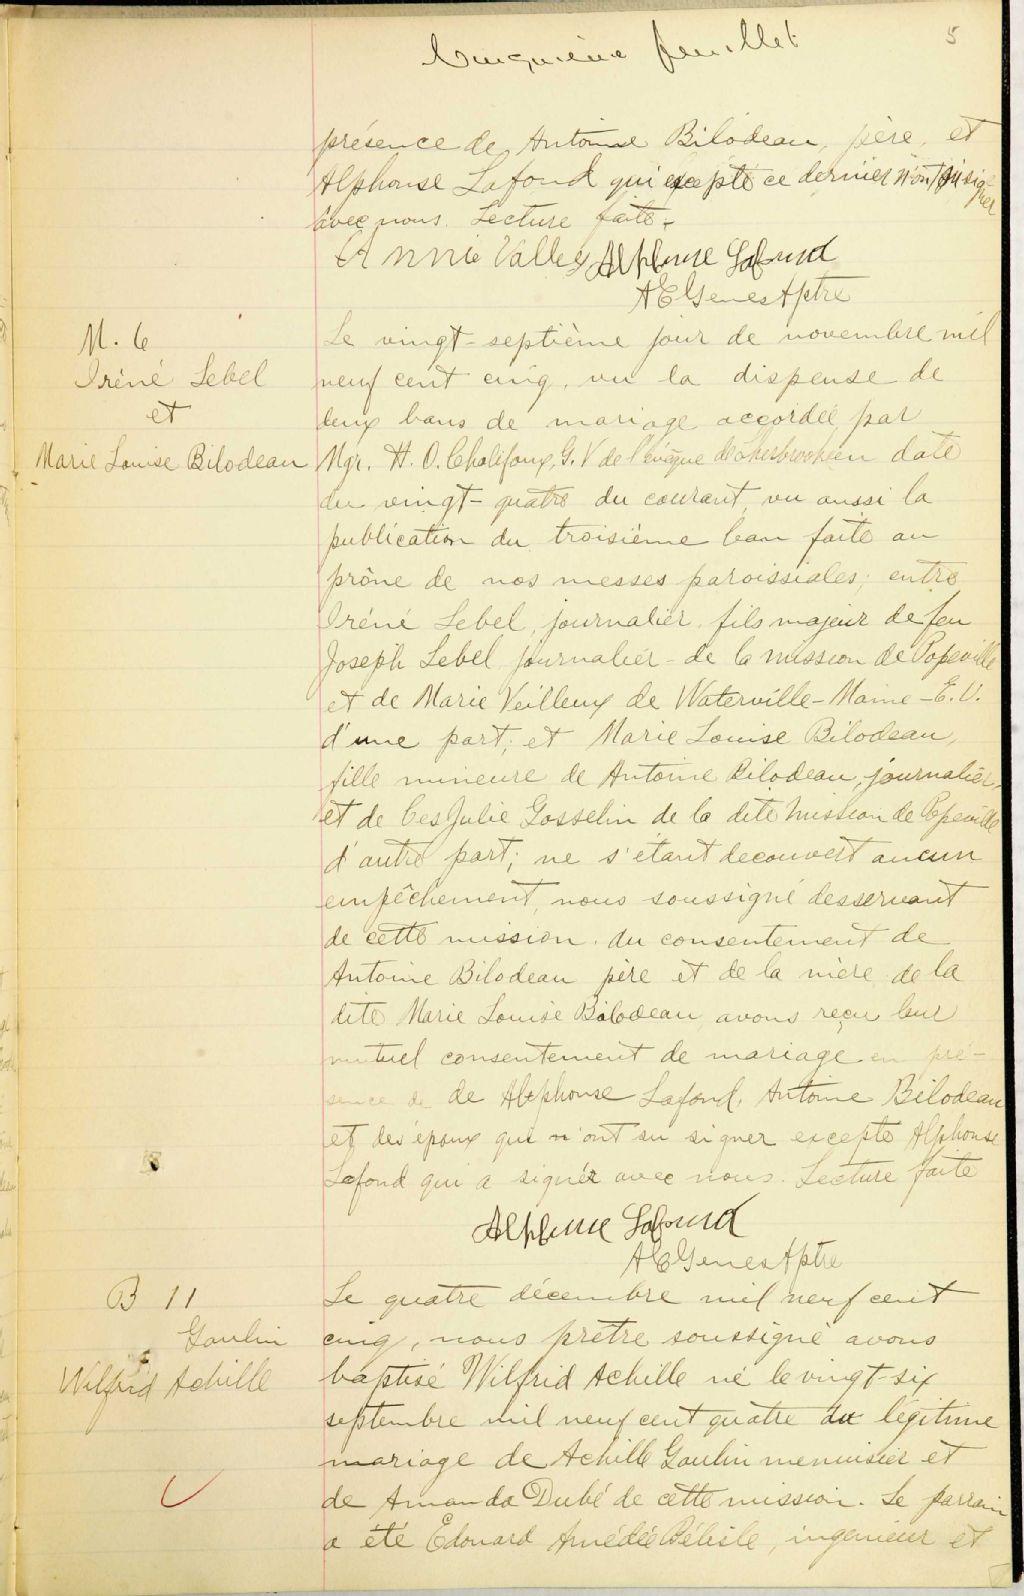 Cinquième feuillet
5
présence de Antoine Bilodeau, père, et
Alphonse Lafond qui excepté ce dernier n'ont su signer
avec nous. Lecture faite.
Annie Valley Alphonse Lafond
A E Genest Ptre
M. 6
Iréné Lebel
et
Marie Louise Bilodeau
Le vingt-septième jour de novembre mil
neuf cent cinq, vu la dispense de
deux bans de mariage accordée par
Mgr. H. O. Chalifoux, G. V de l'évêque de Sherbrooke en date
du vingt-quatre du courant, vu aussi la
publication du troisième ban faite au
prône de nos messes paroissiales; entre
Iréné Lebel, journalier, fils majeur de feu
Joseph Lebel journalier - de la mission de Popeville
et de Marie Veilleux de Waterville - Maine - E. U.
d'une part; et Marie Louise Bilodeau,
fille mineure de Antoine Bilodeau, journalier,
et de Ces Julie Gosselin de la dite mission de Popeville
d'autre part; ne s'étant decouvert aucun
empêchement, nous soussigné desservant
de cette mission du consentement de
Antoine Bilodeau père et de la mère de la
dite Marie Louise Bilodeau avons reçu leur
mutuel consentement de mariage en pre-
sence de de Alphonse Lafond, Antoine Bilodeau
et des époux qui n'ont su signer excepté Alphonse
Lafond qui a signé avec nous. Lecture faite
Alphonse Lafond
A E Genest Ptre
B 11
Goulin
Wilfrid Achille
Le quatre décembre mil neuf cent
cinq, nous prêtre soussigné avons
baptisé Wilfrid Achille né le vingt-six
septembre mil neuf cent quatre du légitime
mariage de Achille Goulin menuisier et
de Amanda Dubé de cette mission. Le parrain
a été Edouard Amédée Bélisle, ingenieur et